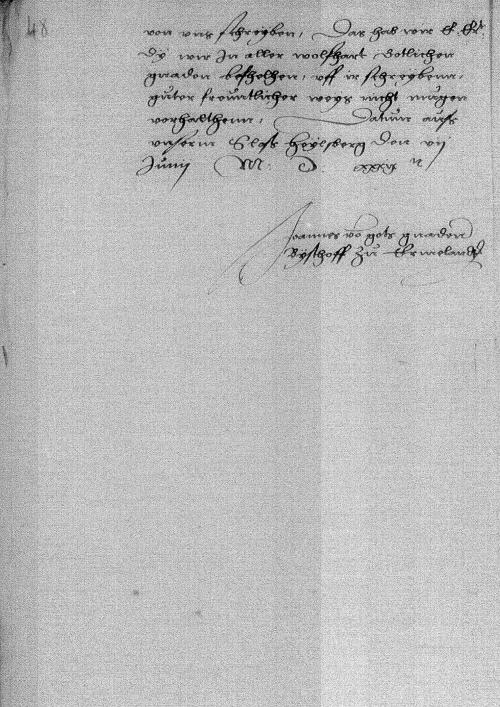 48
von vns schreyben, Das hab wir E. F.
dy wir In aller wolfhart Gotlichen
gnaden befhelhen, vff ir schreybenn,
guter freuntlicher weys nicht mugen
vorhalthenn, Datum auff
vnserm Slos Heylsberg den vij
Junij M. D. xxxij
Joannes vo gots gnaden
Byschoff zu Ermelandt